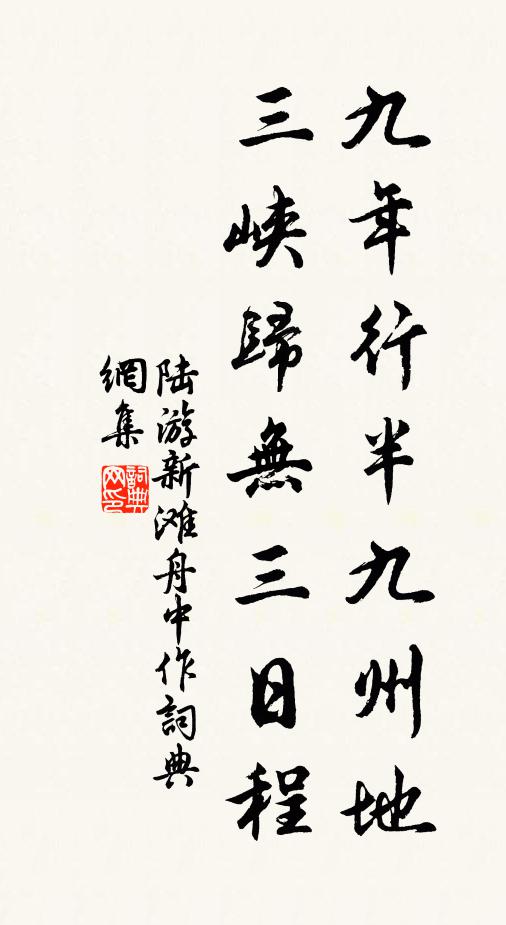 九年行半九州地
三峽歸無三日程
陆游新滩舟中作詞典
網集
詞典网印